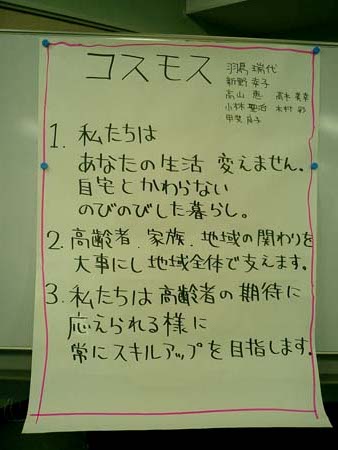 コスモス
羽鳥 瑞代
新野 幸子
高山 恵 高木 美幸
小林 聖治 木村 彩
甲斐 月子
1. 私たちは
あなたの生活 変えません。
自宅とかわらない
のびのびした暮らし。
2. 高齢者、家族、地域の関わりを
大事にし地域全体で支えます。
3. 私たちは高齢者の期待に
応えられる様に
常にスキルアップを目指します。